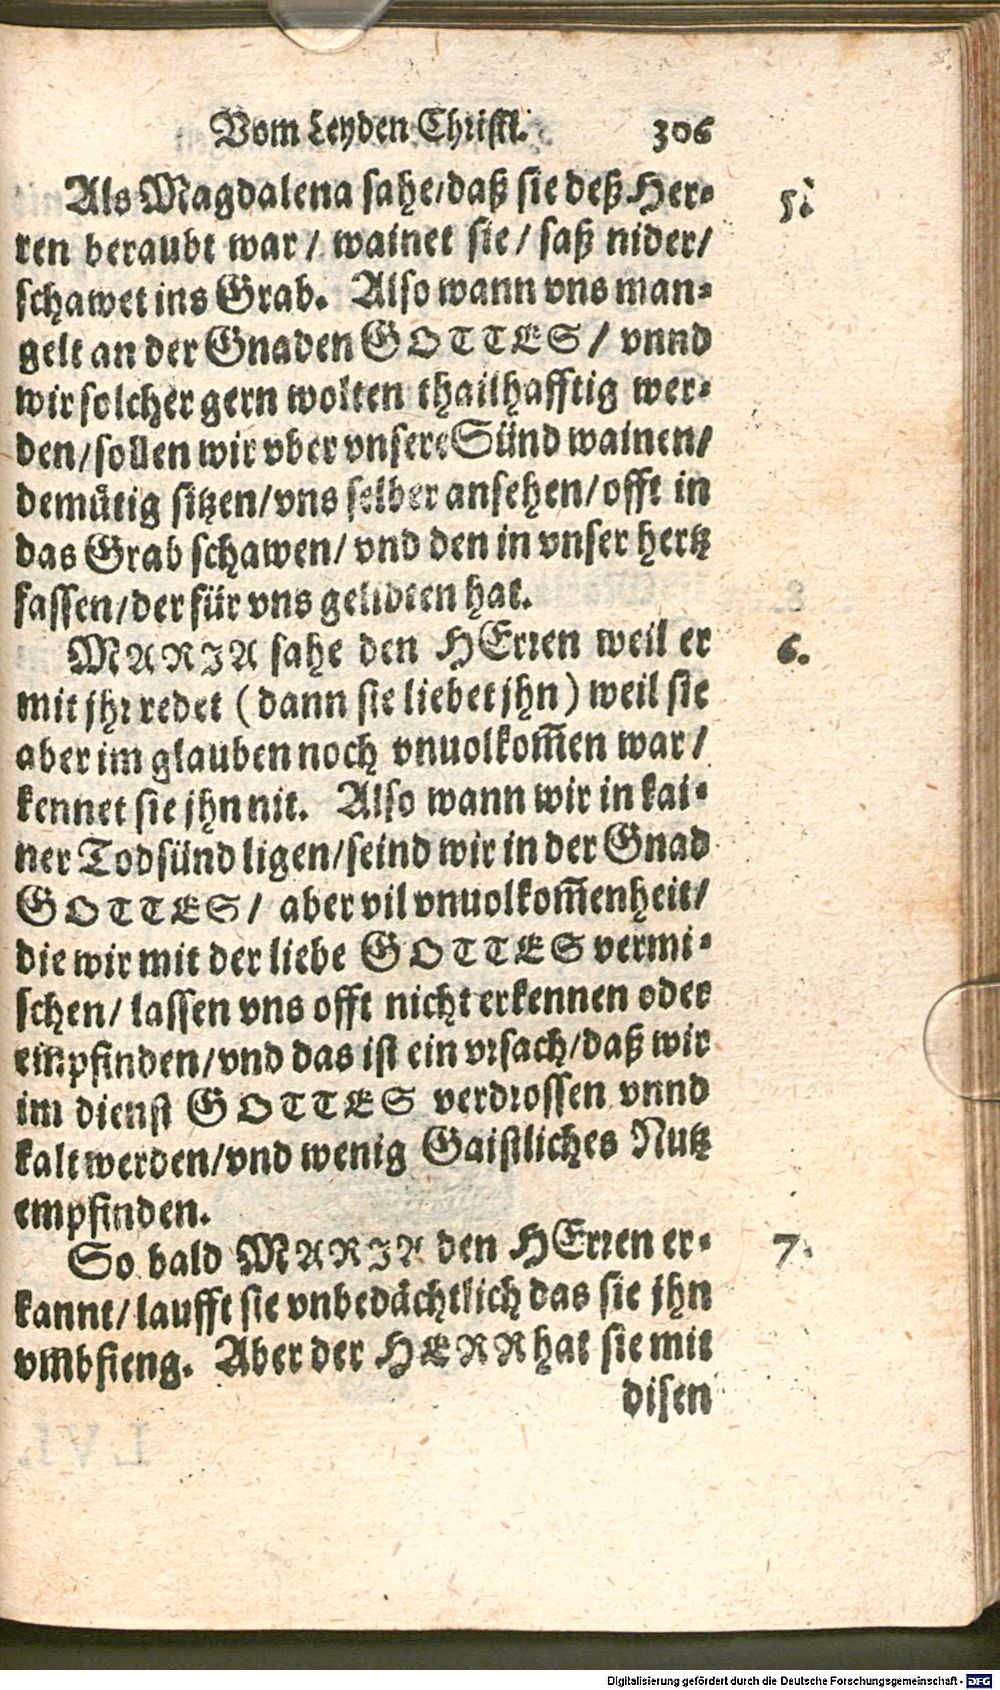 Vom Leyden Christi. 306
Als Magdalena sahe/daß sie deß Her- 5.
ren beraubt war/ wainet sie/ saß nider/
schawet ins Grab. Also wann vns man-
gelt an der Gnaden GOTTES/ vnnd
wir solcher gern wolten thailhafftig wer-
den/sollen wir vber vnsere Sünd wainen/
demütig sitzen/vns selber ansehen/offt in
das Grab schawen/ vnd den in vnser hertz
fassen/der für vns gelidten hat.
MARIA sahe den HErren weil er 6.
mit jhr redet (dann sie liebet jhn) weil sie
aber im glauben noch vnuolkom̃en war/
kennet sie jhn nit. Also wann wir in kai-
ner Todsünd ligen/seind wir in der Gnad
GOTTES/ aber vil vnuolkom̃enheit/
die wir mit der liebe GOTTES vermi-
schen/ lassen vns offt nicht erkennen oder
empfinden/vnd das ist ein vrsach/daß wir
im dienst GOTTES verdrossen vnnd
kalt werden/vnd wenig Gaistliches Nutz
empfinden.
So bald MARIA den HErren er- 7.
kannt/laufft sie vnbedächtlich das sie jhn
vm̃bfieng. Aber der HERR hat sie mit
disen
Digitalisierung gefördert durch die Deutsche Forschungsgemeinschaft - DFG